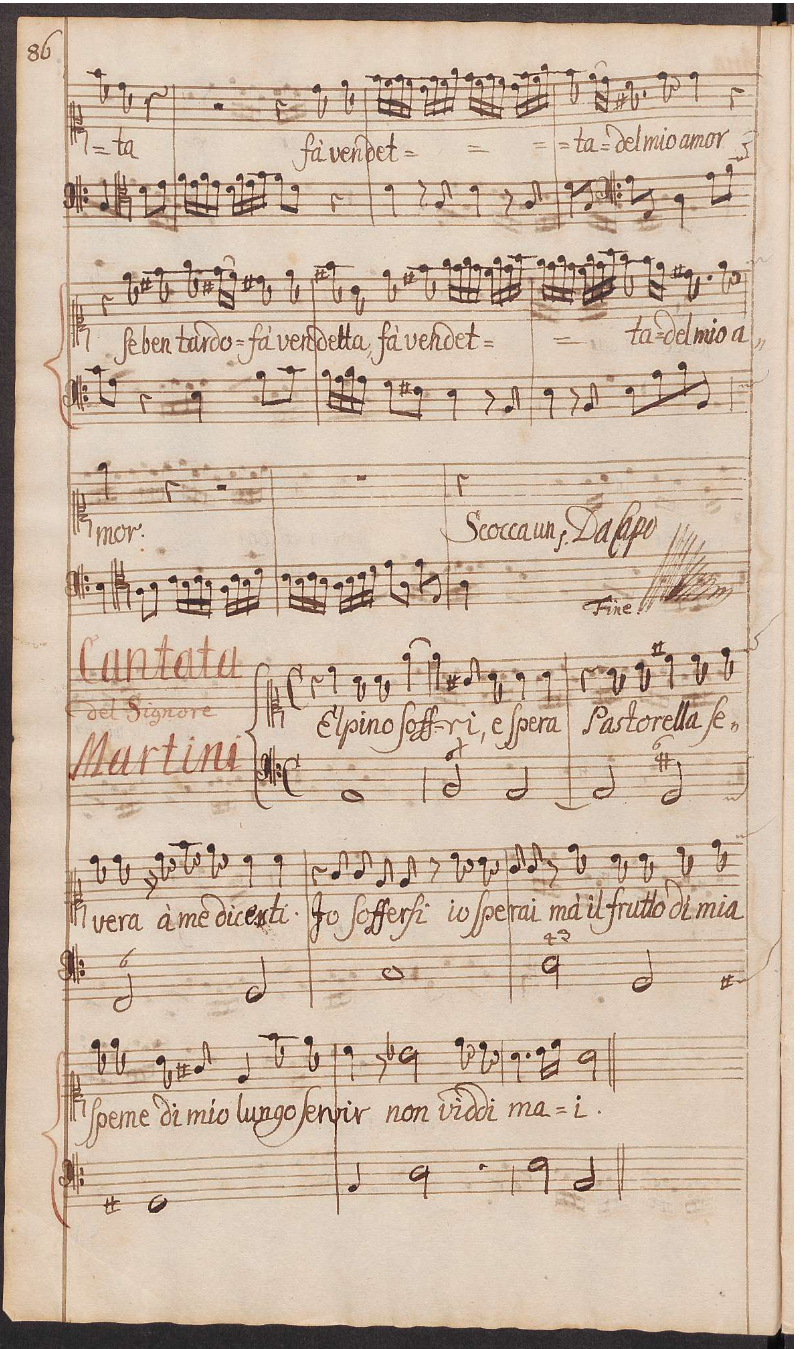 86
= ta fà vendet = = = = ta = del mio amor
se ben tardo = fà vendetta, fà vendet = = ta = del mio a„
mor. Scocca un, Da Capo
Fine.
Cantata
del Signore
Martini
Elpino soff=ri, e spera Pastorella se„
6
6
vera à me dicesti. Io soffersi io sperai mà il frutto di mia
6
43
speme di mio lungo servir non viddi ma = i.